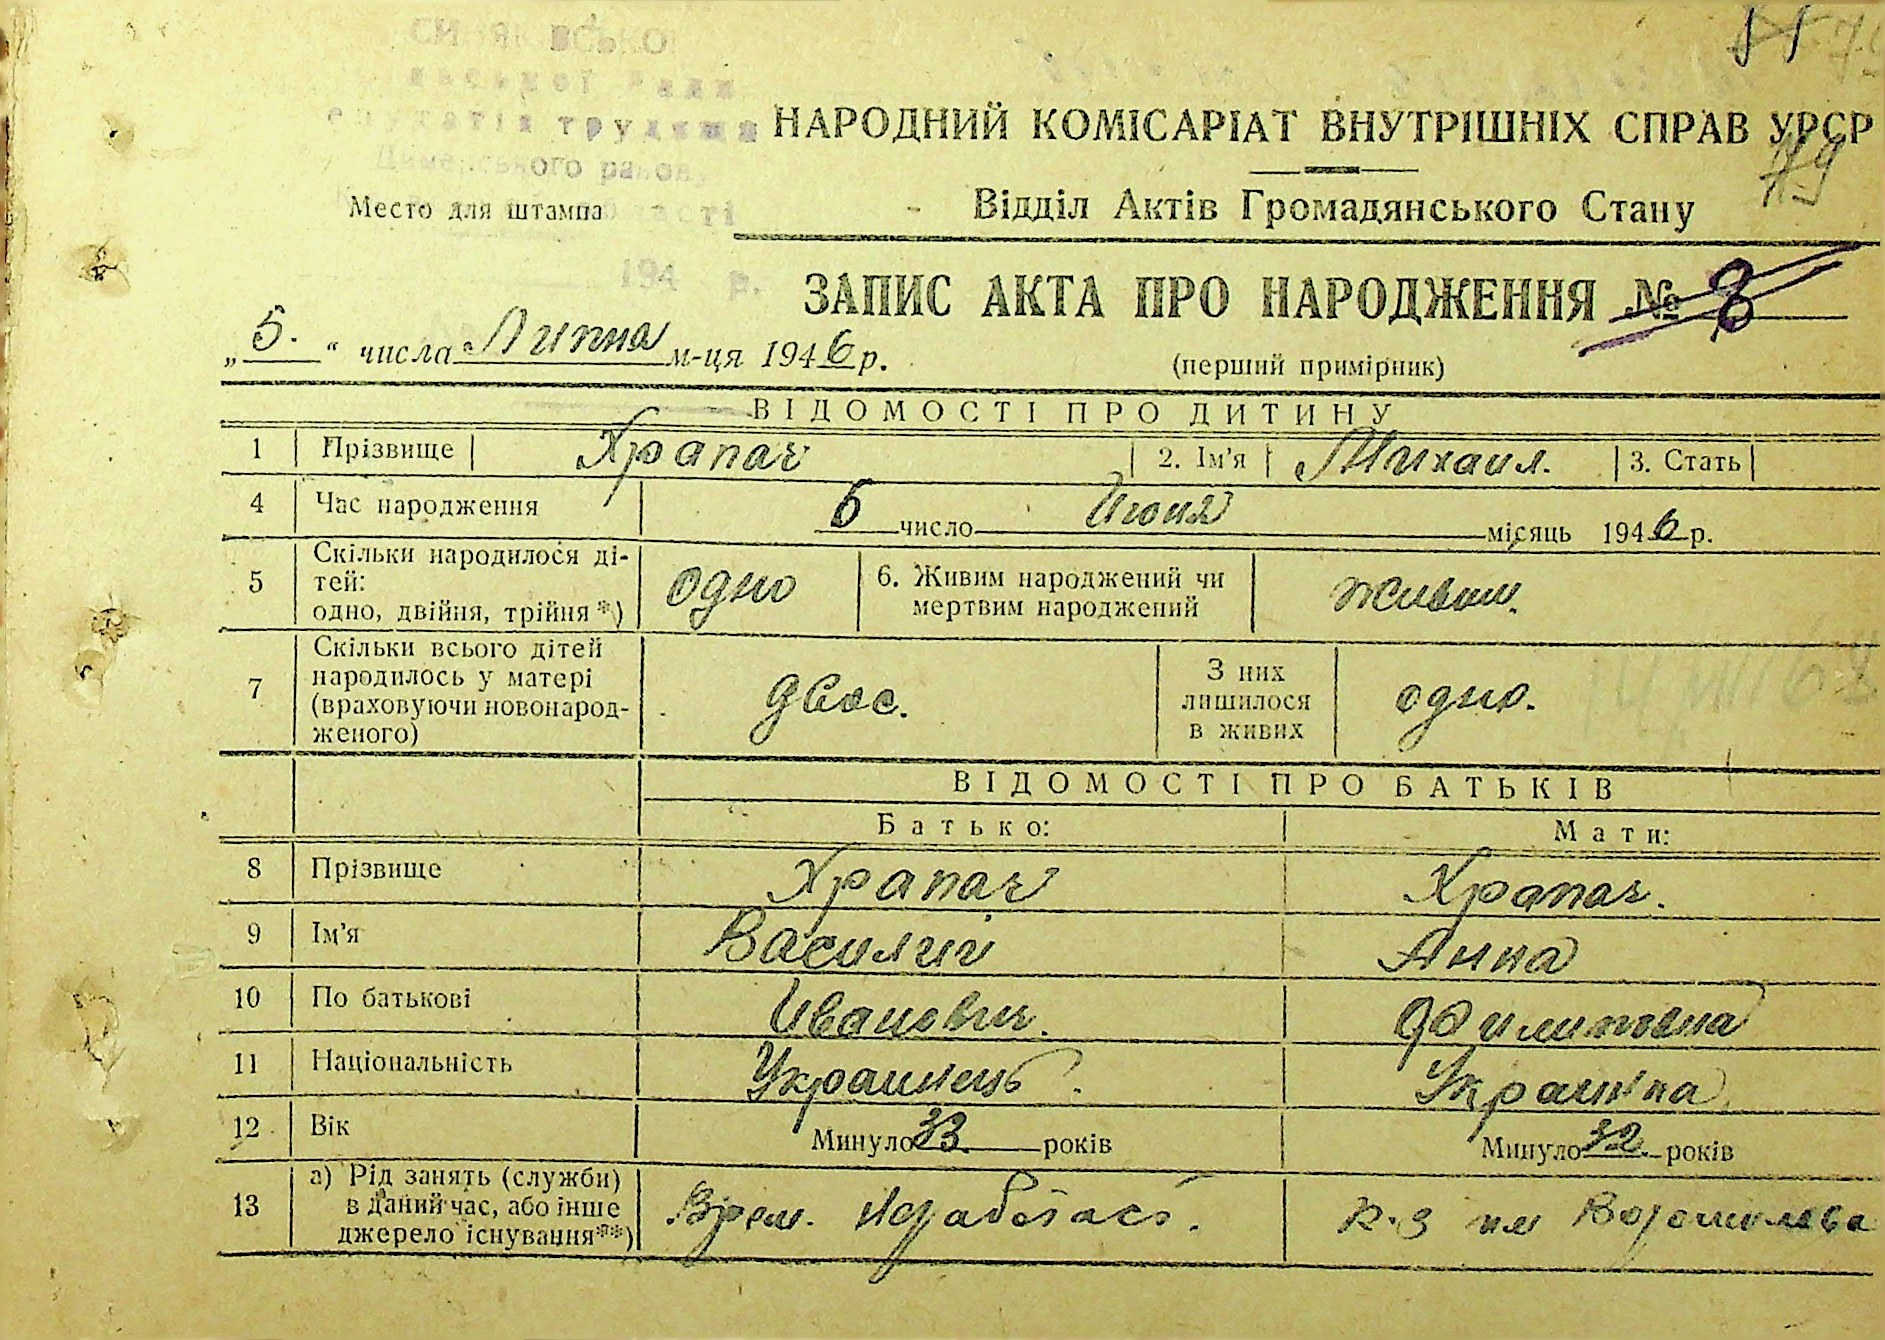 79
НАРОДНИЙ КОМІСАРІАТ ВНУТРІШНІХ СПРАВ УРСР
79
Димерського району
Место для штампа
Відділ Актів Громадянського Стану
194 р.
ЗАПИС АКТА ПРО НАРОДЖЕННЯ № 8
„5.“ числа Липня м-ця 1946 р.
(перший примірник)
ВІДОМОСТІ ПРО ДИТИНУ
1 Прізвище Храпач 2. Ім'я Михаил. 3. Стать
4 Час народження 6 число Июня місяць 1946 р.
5 Скільки народилося ді-
тей:
одно, двійня, трійня*) одно 6. Живим народжений чи
мертвим народжений живым.
7 Скільки всього дітей
народилось у матері
(враховуючи новонарод-
женого) двое. З них
лишилося
в живих одно.
ВІДОМОСТІ ПРО БАТЬКІВ
Батько: Мати:
8 Прізвище Храпач Храпач.
9 Ім'я Василий Анна
10 По батькові Иванович. Филиповна
11 Національність Украинець. Украинка
12 Вік Минуло 33 років Минуло 32 років
13 а) Рід занять (служби)
в даний час, або інше
джерело існування**) Врем. к-з им Ворошилова